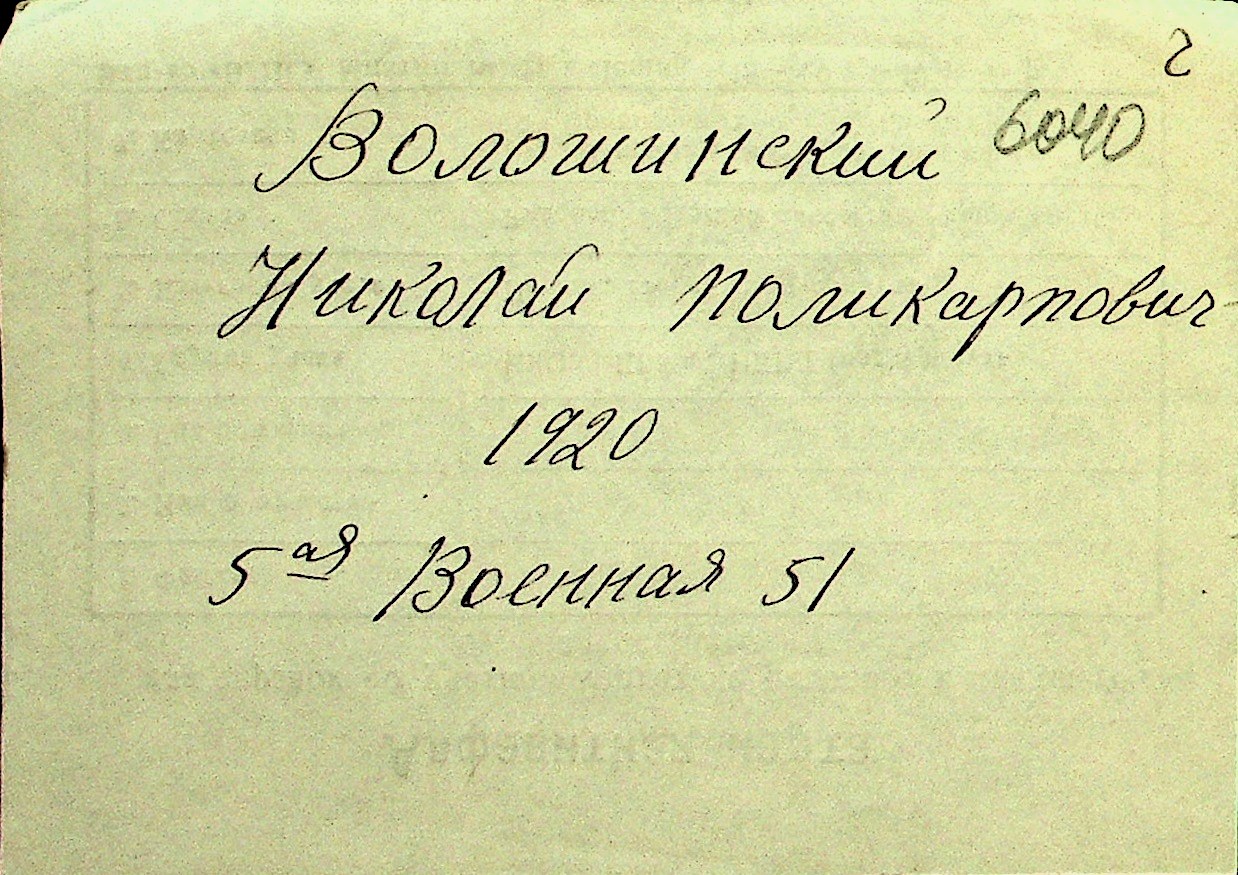 г
Волошинский 6040
Николай Поликарпович
1920
5ая Военная 51